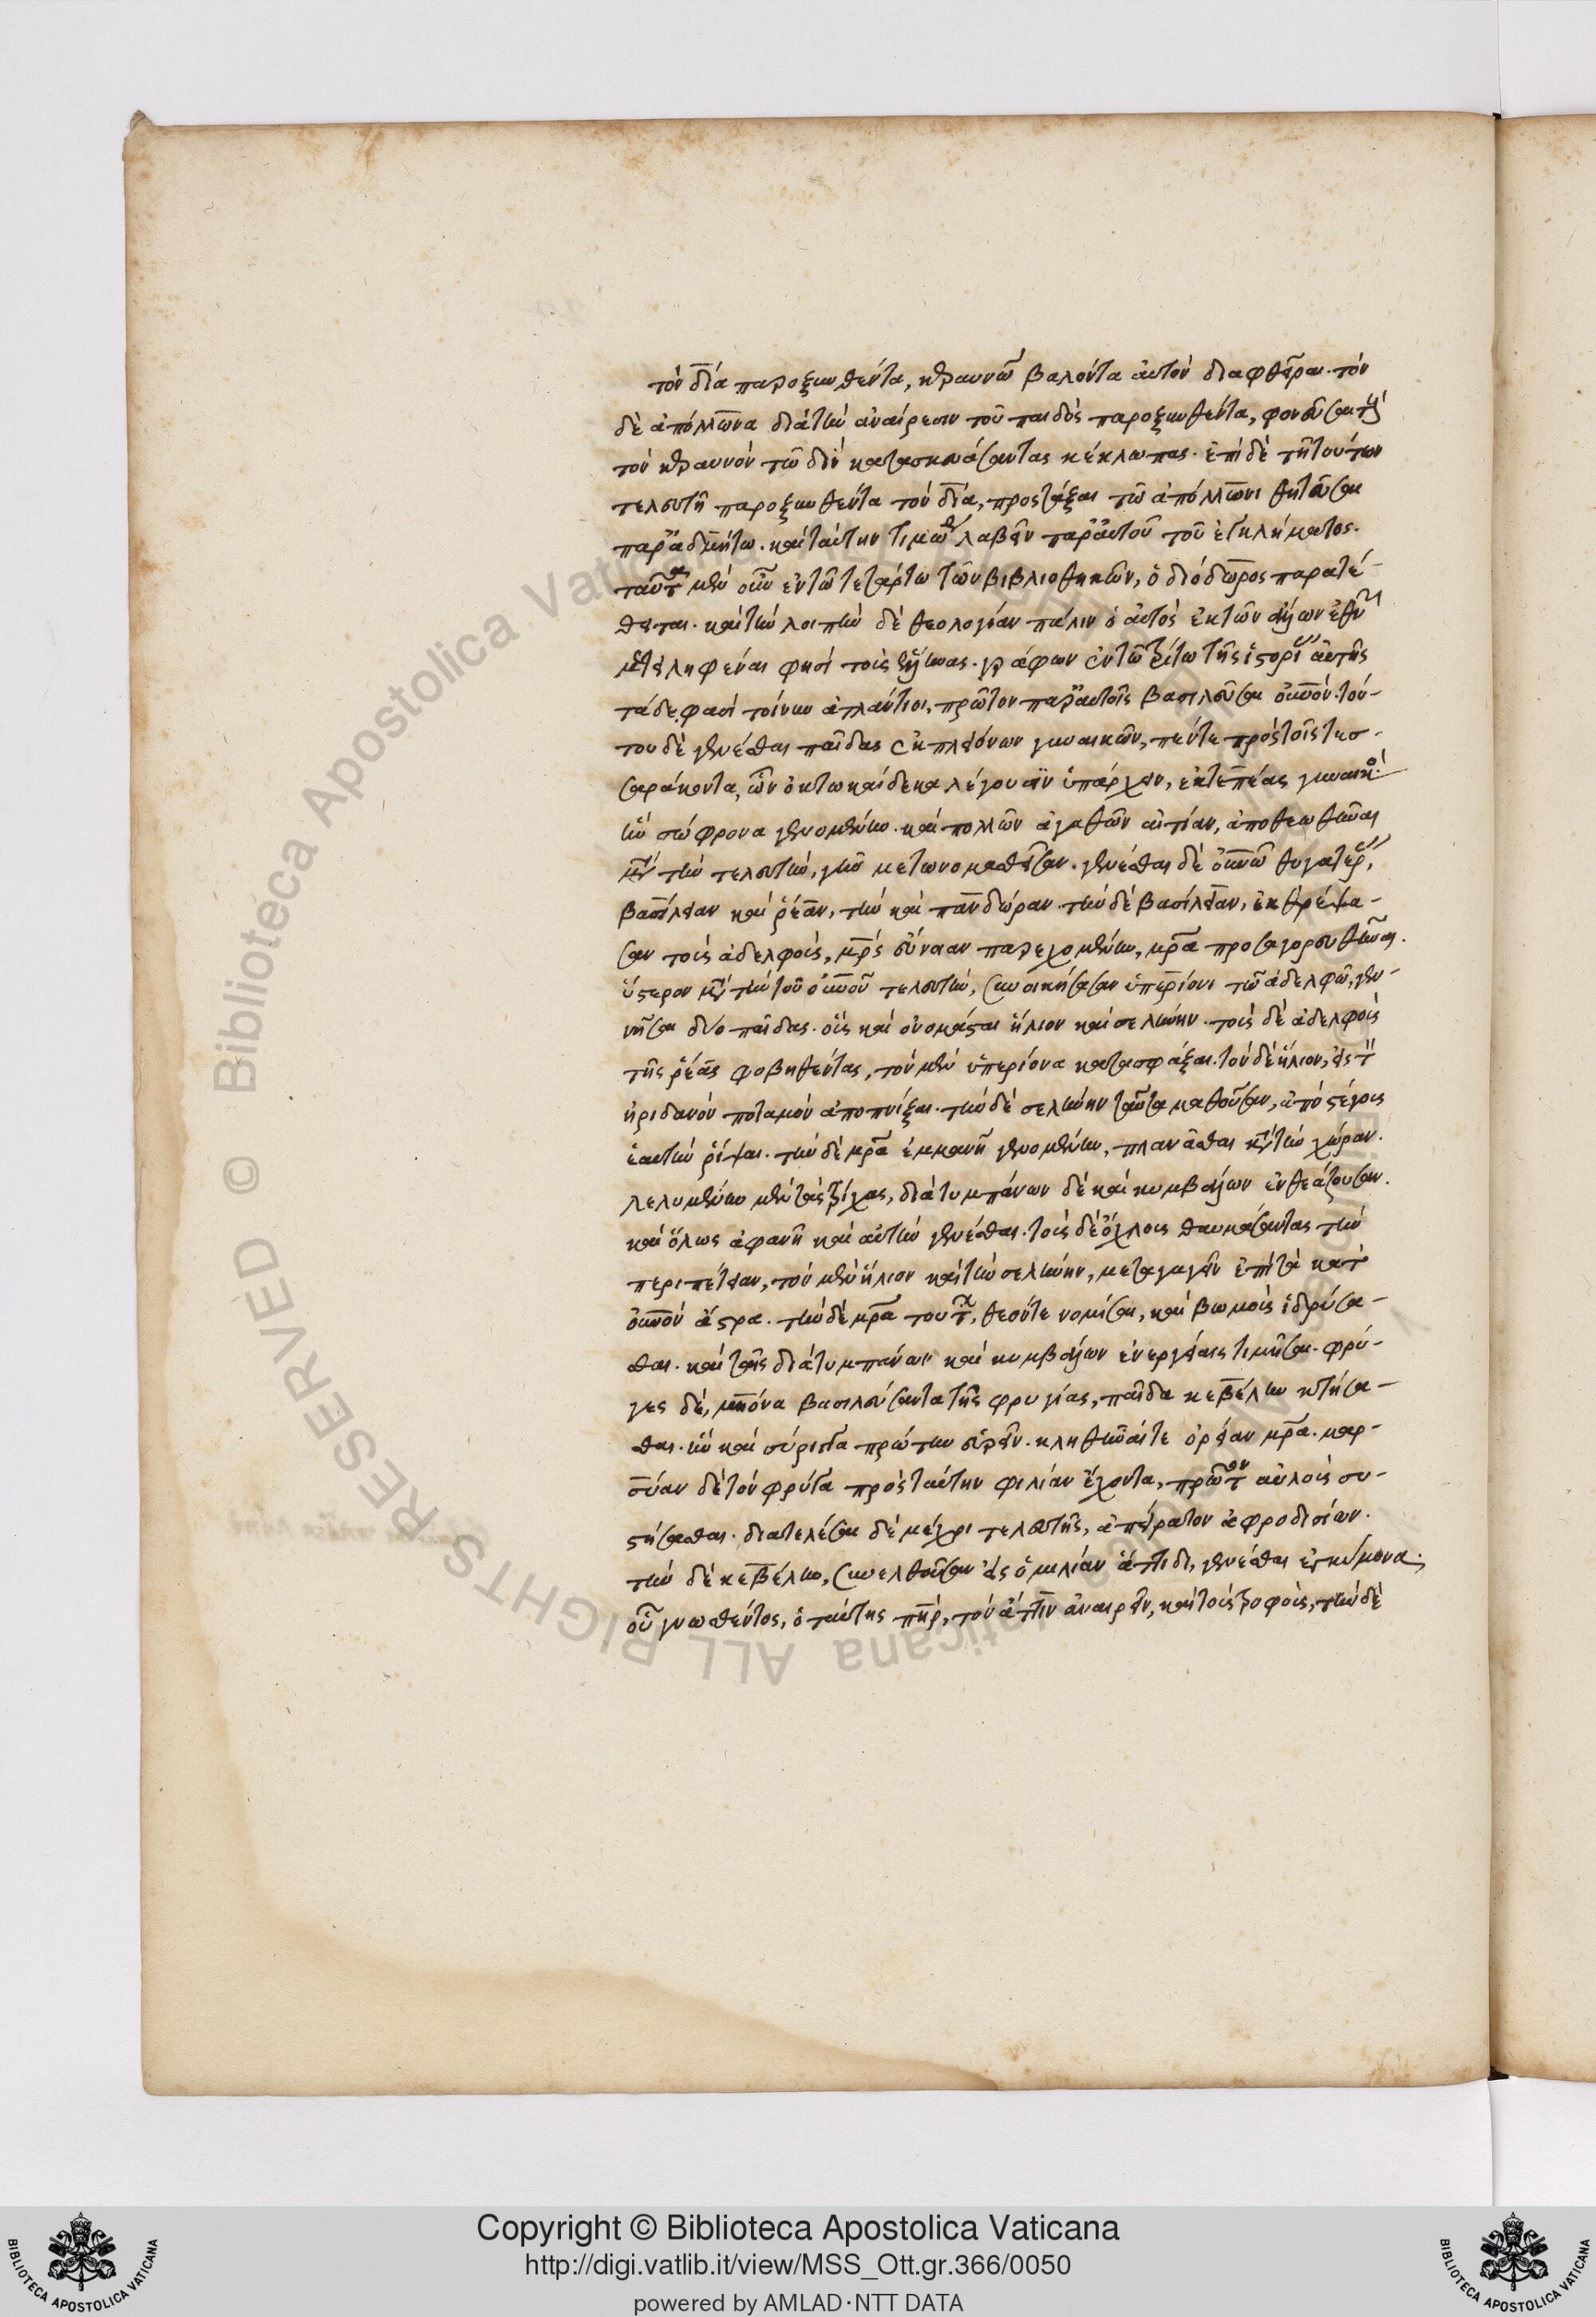 τὸν δία παροξυνθέντα, κεραυνῶ βαλόντα αὐτὸν διαφθεῖραι. τὸν
δὲ ἀπόλλωνα διὰ τὴν ἀναίρεσιν τοῦ παιδὸς παροξυνθέντα, φονεῦσαι τοὺς
τὸν κεραυνὸν τῶ διῒ κατασκευάσαντας κύκλωπας. ἐπὶ δὲ τῆ τούτων
τελευτῆ παροξυνθέντα τὸν δία, προστάξαι τῶ ἀπόλλωνι θητεῦσαι
παρ' ἀδμήτω. καὶ ταύτην τιμωρίαν λαβεῖν παρ' αὐτοῦ τοῦ ἐγκλήματος.
ταῦτα μὲν οὖν ἐν τῶ τετάρτω τῶν βιβλιοθηκῶν, ὁ διόδωρος παρατέ-
θειται. καὶ τὴν λοιπὴν δὲ θεολογίαν πάλιν ὁ αὐτὸς ἐκ τῶν ἄλλων ἐθνῶν
μετειληφέναι φησὶ τοὺς ἕλληνας. γράφων ἐν τῶ τρίτω τῆς ἱστορίας αὐτῆς
τάδε. φασὶ τοίνυν ἀτλάντιοι, πρῶτον παρ' αὐτοῖς βασιλεῦσαι οὐρανόν. τού-
του δὲ γενέσθαι παῖδας ἐκ πλειόνων γυναικῶν, πέντε πρὸς τοῖς τεσ-
σαράκοντα, ὧν ὀκτωκαίδεκα λέγουσιν ὑπάρχειν, ἐκ τιτέας γυναικός.
ἣν σώφρονα γενομένην. καὶ πολλῶν ἀγαθῶν αἰτίαν, ἀποθεωθῆναι
μετὰ τὴν τελευτὴν, γῆν μετωνομασθεῖσαν. γενέσθαι δὲ οὐρανῶ θυγατέρας,
βασίλειαν καὶ ῥέαν, τὴν καὶ πανδώραν. τὴν δὲ βασίλειαν, ἐκθρέψα-
σαν τοὺς ἀδελφοὺς, μητρὸς εὔνοιαν παρεχομένην, μητέρα προσαγορευθῆναι.
ὕστερον μετὰ τὴν τοῦ οὐρανοῦ τελευτὴν, συνοικήσασαν ὑπερίονι τῶ ἀδελφῶ, γεν-
νῆσαι δύο παῖδας. οὓς καὶ ὀνομάσαι ἥλιον καὶ σελήνην. τοὺς δὲ ἀδελφοὺς
τῆς ῥέας φοβηθέντας, τὸν μὲν ὑπερίονα κατασφάξαι. τὸν δὲ ἥλιον, εἰς τὸν
ἠριδανὸν ποταμὸν ἀποπνίξαι. τὴν δὲ σελήνην ταῦτα μαθοῦσαν, ἀπὸ στέγους
ἑαυτὴν ῥίψαι. τὴν δὲ μητέρα ἐμμανῆ γενομένην, πλανᾶσθαι κατὰ τὴν χώραν.
λελυμένην μὲν τὰς τρίχας, διὰ τυμπάνων δὲ καὶ κυμβάλων ἐνθεάζουσαν.
καὶ ὅλως ἀφανῆ καὶ αὐτὴν γενέσθαι. τοὺς δὲ ὄχλους θαυμάσαντας τὴν
περιπέτειαν, τὸν μὲν ἥλιον καὶ τὴν σελήνην, μεταγαγεῖν ἐπὶ τὰ κατ'
οὐρανὸν ἄστρα. τὴν δὲ μητέρα τούτων, θεόν τε νομίσαι, καὶ βωμοὺς ἱδρύσα-
σθαι. καὶ ταῖς διὰ τυμπάνων καὶ κυμβάλων ἐνεργείαις τιμῆσαι. φρύ-
γες δὲ, μηόνα βασιλεύσαντα τῆς φρυγίας, παῖδα κυβέλην κτήσα-
σθαι. ἣν καὶ σύριγγα πρώτην εὑρεῖν. κληθῆναί τε ὀρείαν μητέρα. μαρ-
σύαν δὲ τὸν φρύγα πρὸς ταύτην φιλίαν ἔχοντα, πρῶτον αὐλοὺς συ-
στήσασθαι. διατελέσαι δὲ μέχρι τελευτῆς, ἀπείρατον ἀφροδισίων.
τὴν δὲ κυβέλην, συνελθοῦσαν εἰς ὁμιλίαν ἄττιδι, γενέσθαι ἐγκύμονα.
οὗ γνωσθέντος, ὁ ταύτης πατὴρ, τὸν ἄττιν ἀναιρεῖν, καὶ τοὺς τροφοὺς, τὴν δὲ
Copyright © Biblioteca Apostolica Vaticana
http://digi.vatlib.it/view/MSS_Ott.gr.366/0050
powered by AMLAD·NTT DATA
BIBLIOTECA APOSTOLICA VATICANA
BIBLIOTECA APOSTOLICA VATICANA
© Biblioteca Apostolica Vaticana ALL RIGHTS RESERVED